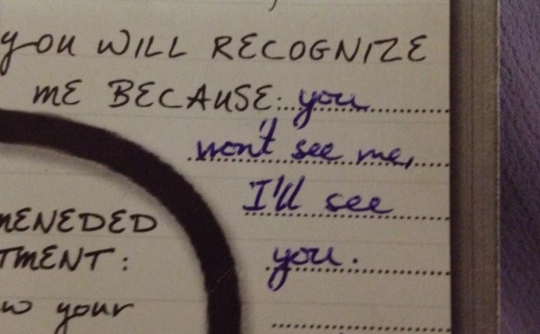 you WILL RECOGNIZE
ME BECAUSE: you
won't see me,
I'll see
MENEDED
you.
TMENT:
w your